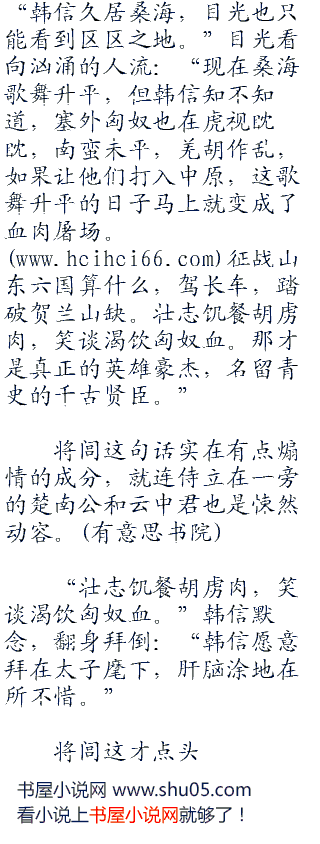 “韩信久居桑海，目光也只
能看到区区之地。”目光看
向汹涌的人流：“现在桑海
歌舞升平，但韩信知不知
道，塞外匈奴也在虎视眈
眈，南蛮未平，羌胡作乱，
如果让他们打入中原，这歌
舞升平的日子马上就变成了
血肉屠场。
(www.hcihci66.com)征战山
东六国算什么，驾长车，踏
破贺兰山缺。壮志饥餐胡虏
肉，笑谈渴饮匈奴血。那才
是真正的英雄豪杰，名留青
史的千古贤臣。”
将闾这句话实在有点煽
情的成分，就连侍立在一旁
的楚南公和云中君也是悚然
动容。(有意思书院)
“壮志饥餐胡虏肉，笑
谈渴饮匈奴血。”韩信默
念，翻身拜倒：“韩信愿意
拜在太子麾下，肝脑涂地在
所不惜。”
将闾这才点头
书屋小说网 www.shu05.com
看小说上书屋小说网就够了！